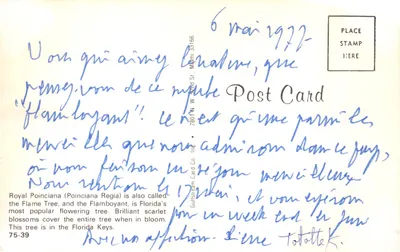 6 mai 1977.
Vous qui aimez la nature, que
pensez-vous de ce
"flamboyant"! Ce n'est qu'une parmi les
merveilles que nous admirons dans ce pays,
où nous faisons un séjour merveilleux
Nous rentrons le 17 mai, et vous
un week end en juin
Avec nos affections. Pierre
PLACE
STAMP
HERE
Post Card
Royal Poinciana (Poinciana Regia) is also called
the Flame Tree, and the Flamboyant, is Florida's
most popular flowering tree. Brilliant scarlet
blossoms cover the entire tree when in bloom.
This tree is in the Florida Keys.
75-39